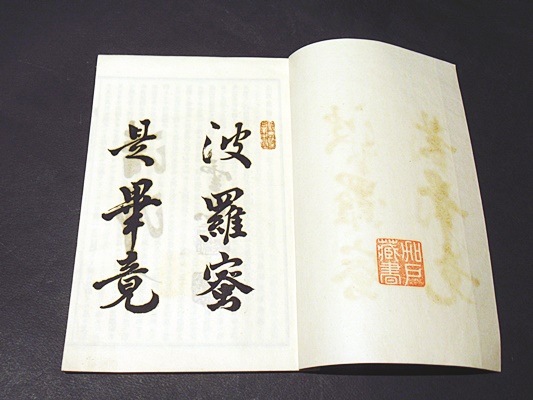 波羅蜜
是畢竟
藏書